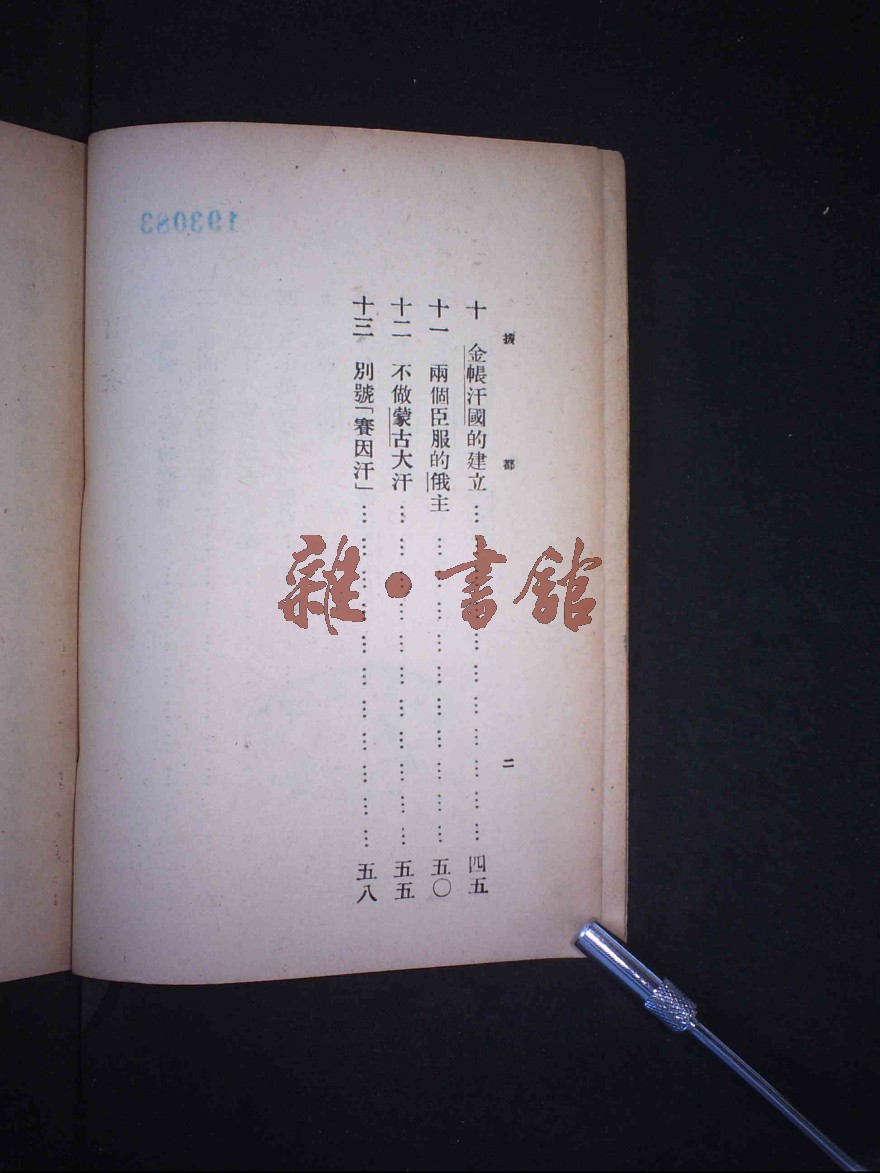 拔都
二
十 金帳汗國的建立………………………………四五
十一 兩個臣服的俄主………………………………五〇
十二 不做蒙古大汗………………………………五五
十三 別號「賽因汗」………………………………五八
193083
雜・書館